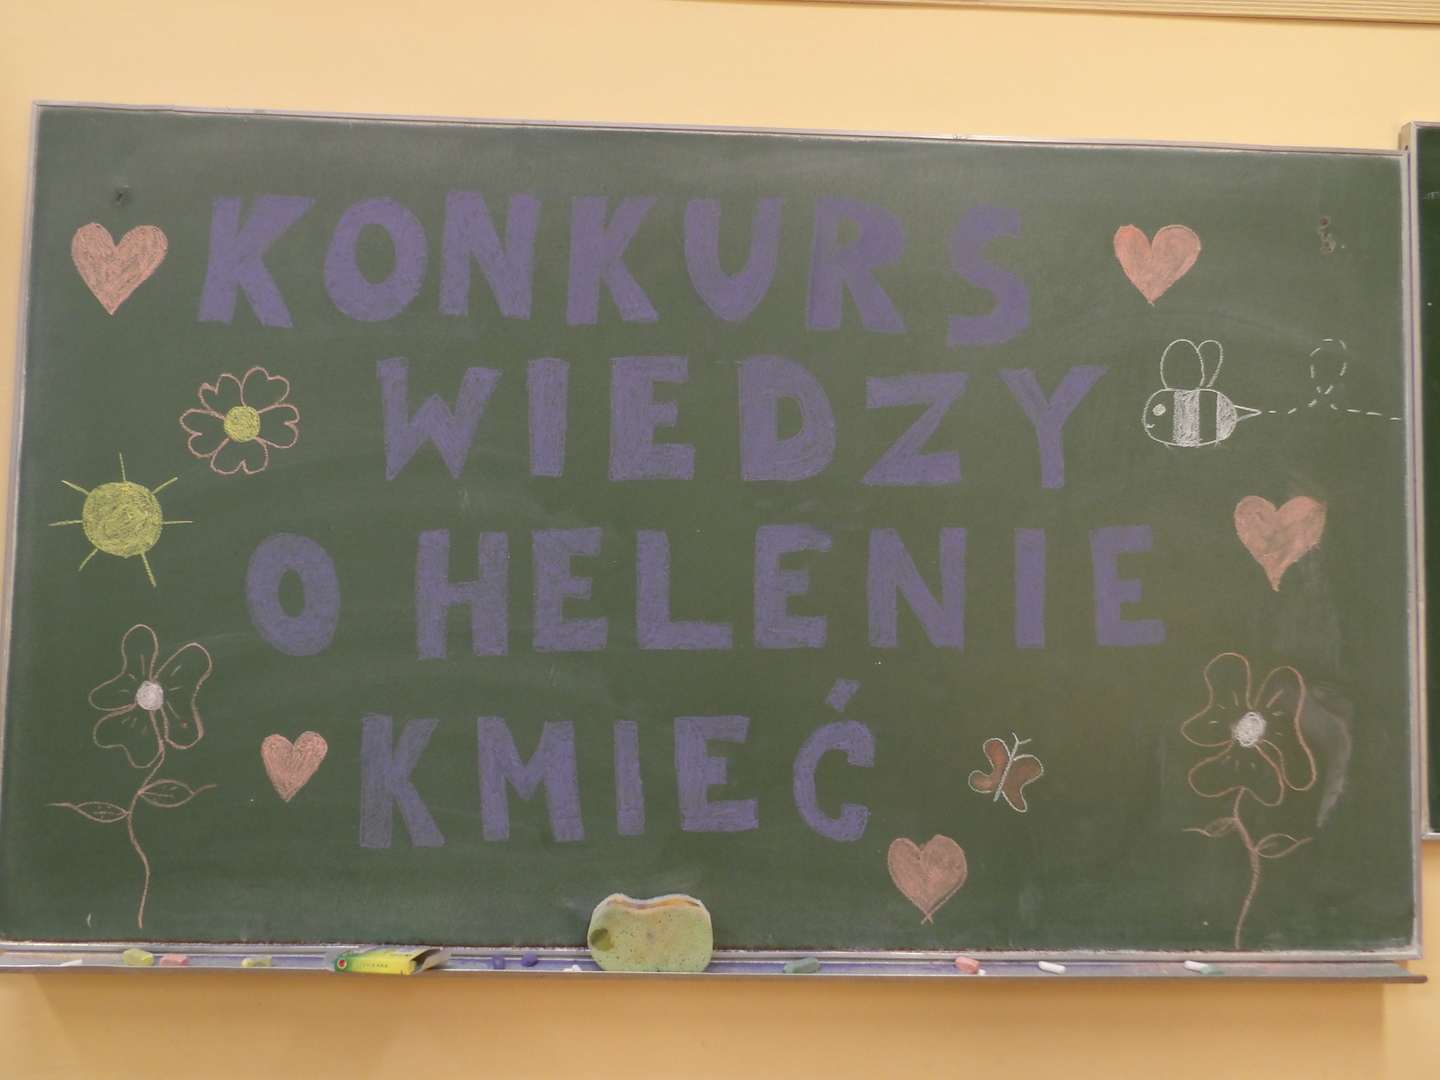 KONKURS
WIEDZY
O HELENIE
KMIEĆ